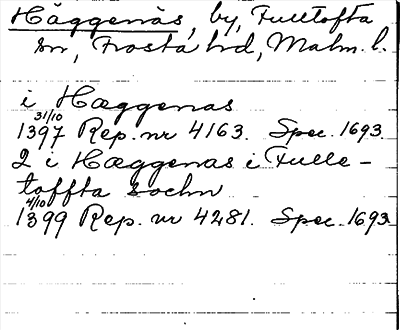 Häggenäs, by, Fulltofta
sn, Frosta hd, Malm. l.
i Hæggenas
31/10
1397 Rep. nr 4163. Spec. 1693.
2 i Hæggenas i Fulle-
toffta sochn
4/10
1399 Rep. nr 4281. Spec. 1693